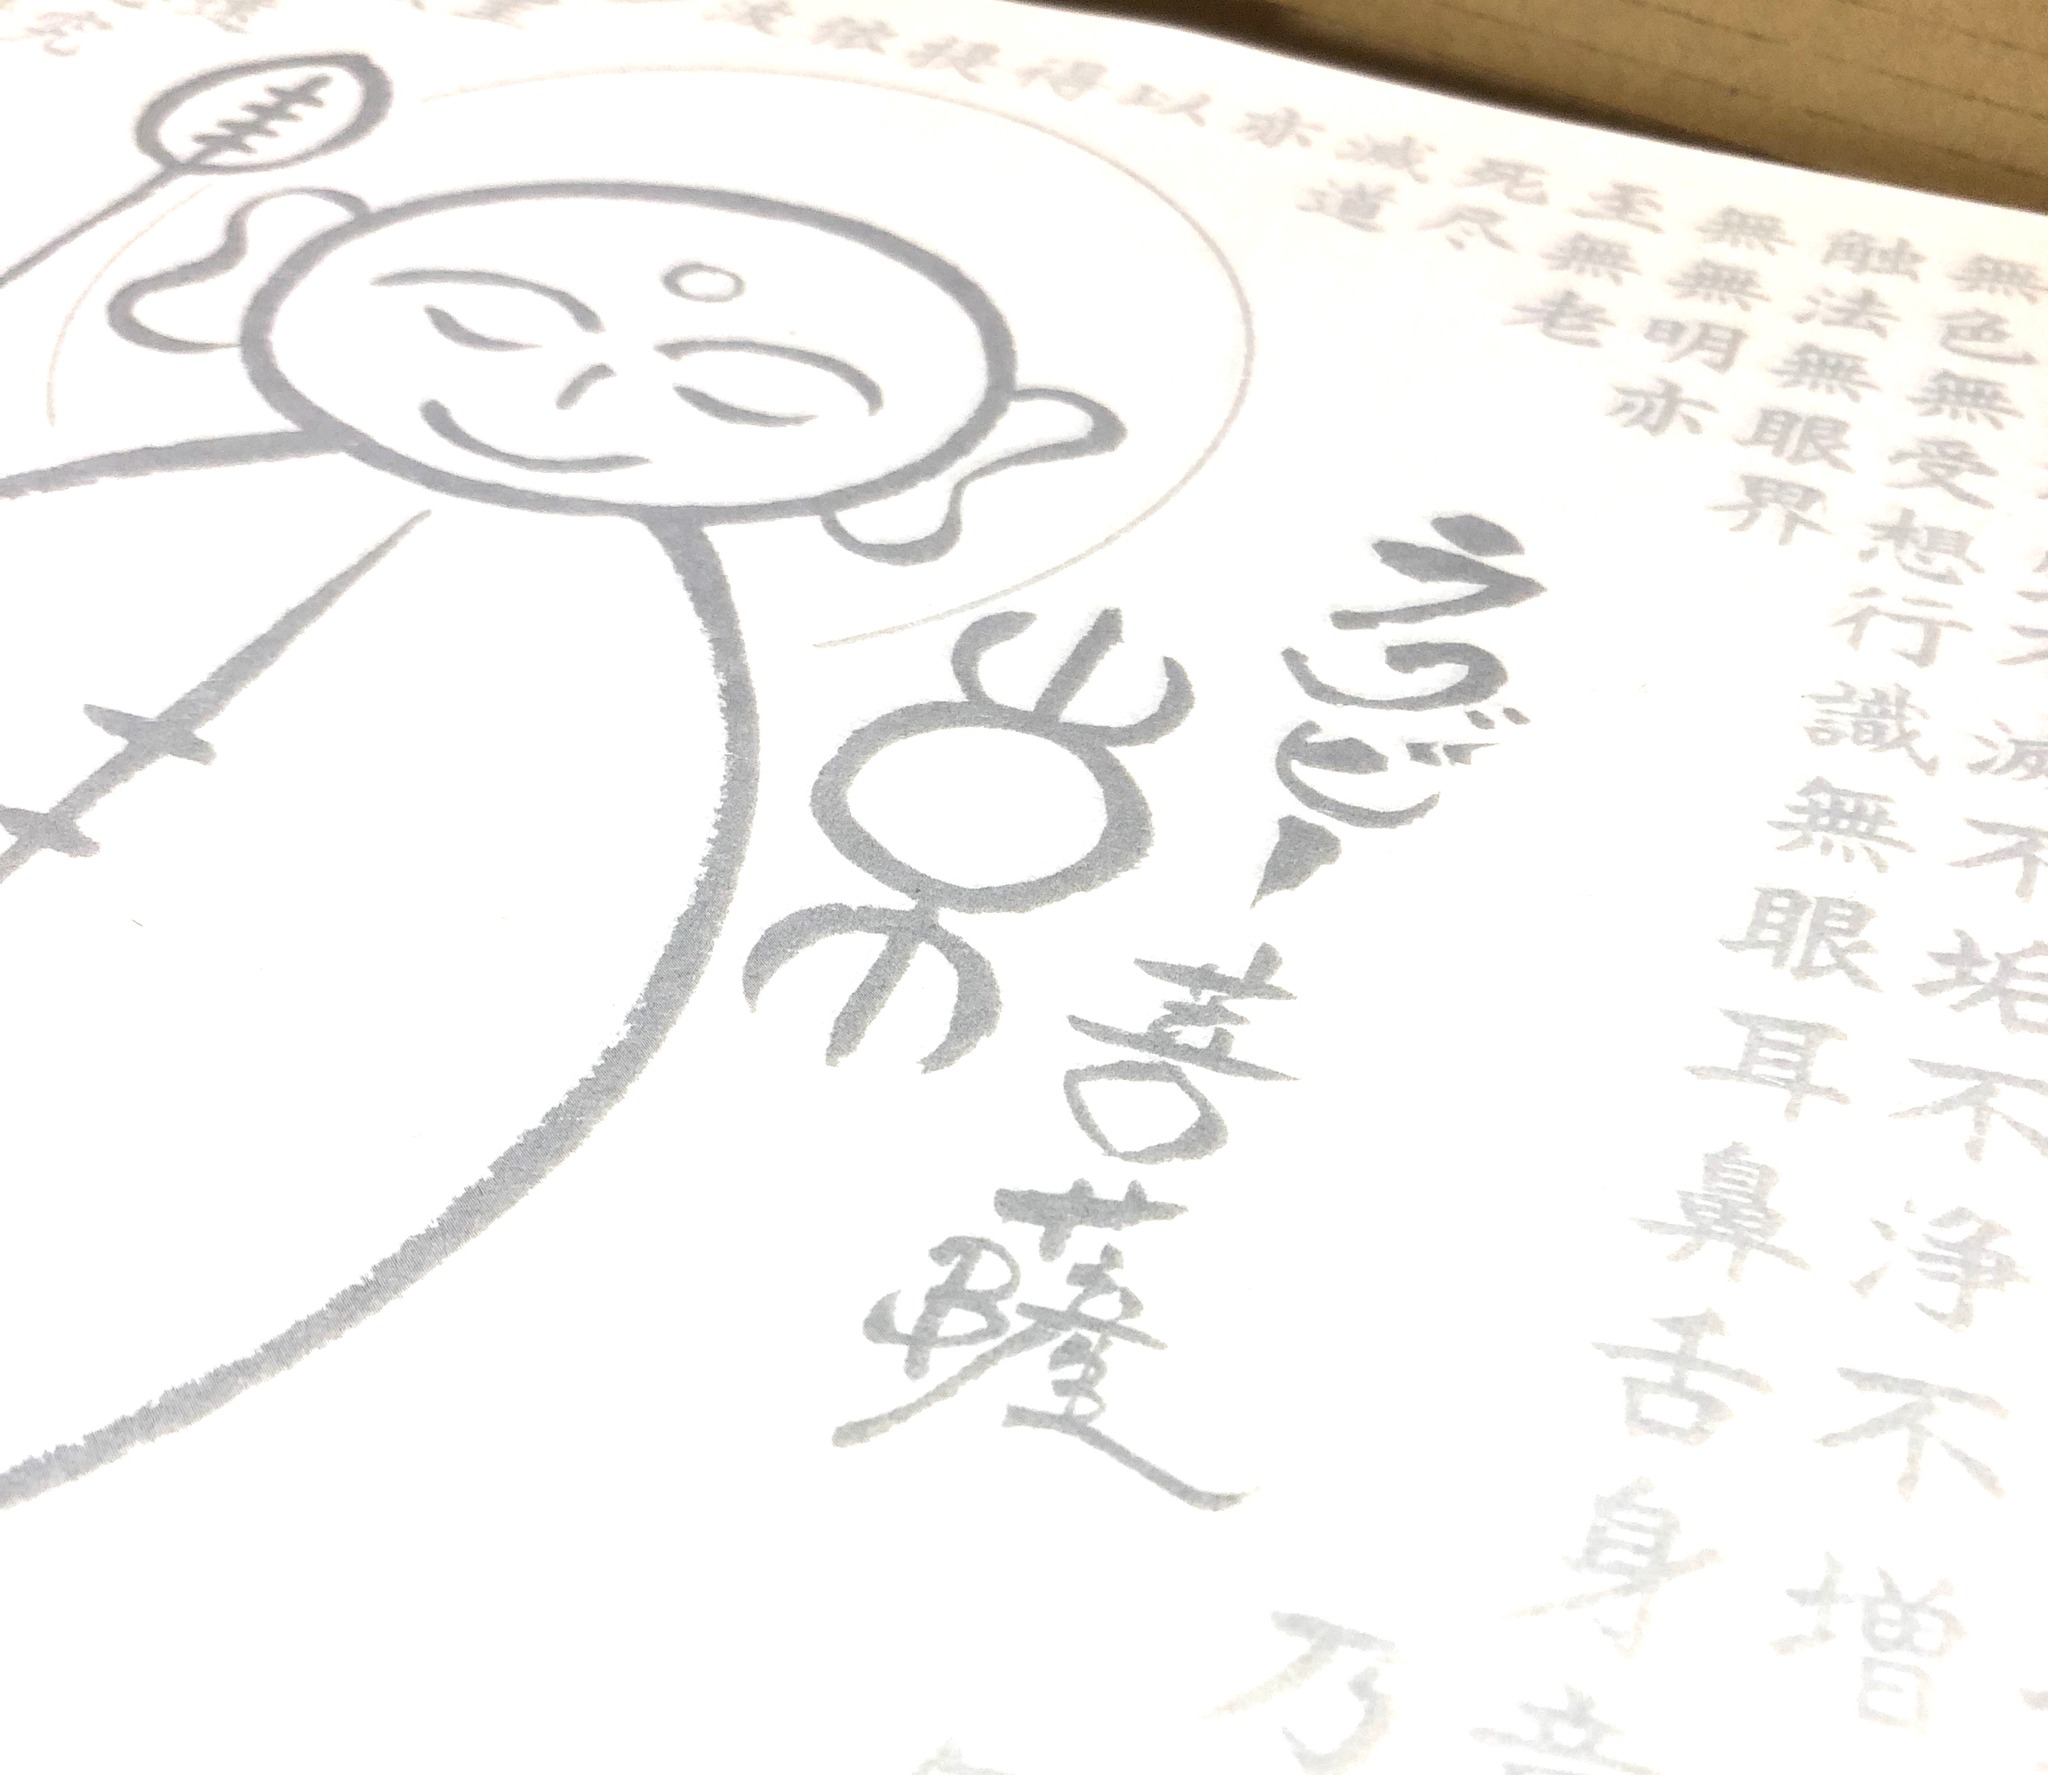 滅不垢不浄不増
無色無受想行識無眼耳鼻舌身意
触法無眼界
乃
無無明亦
至無老
死尽
滅道
亦
以
得
提
依
ラグビー菩薩